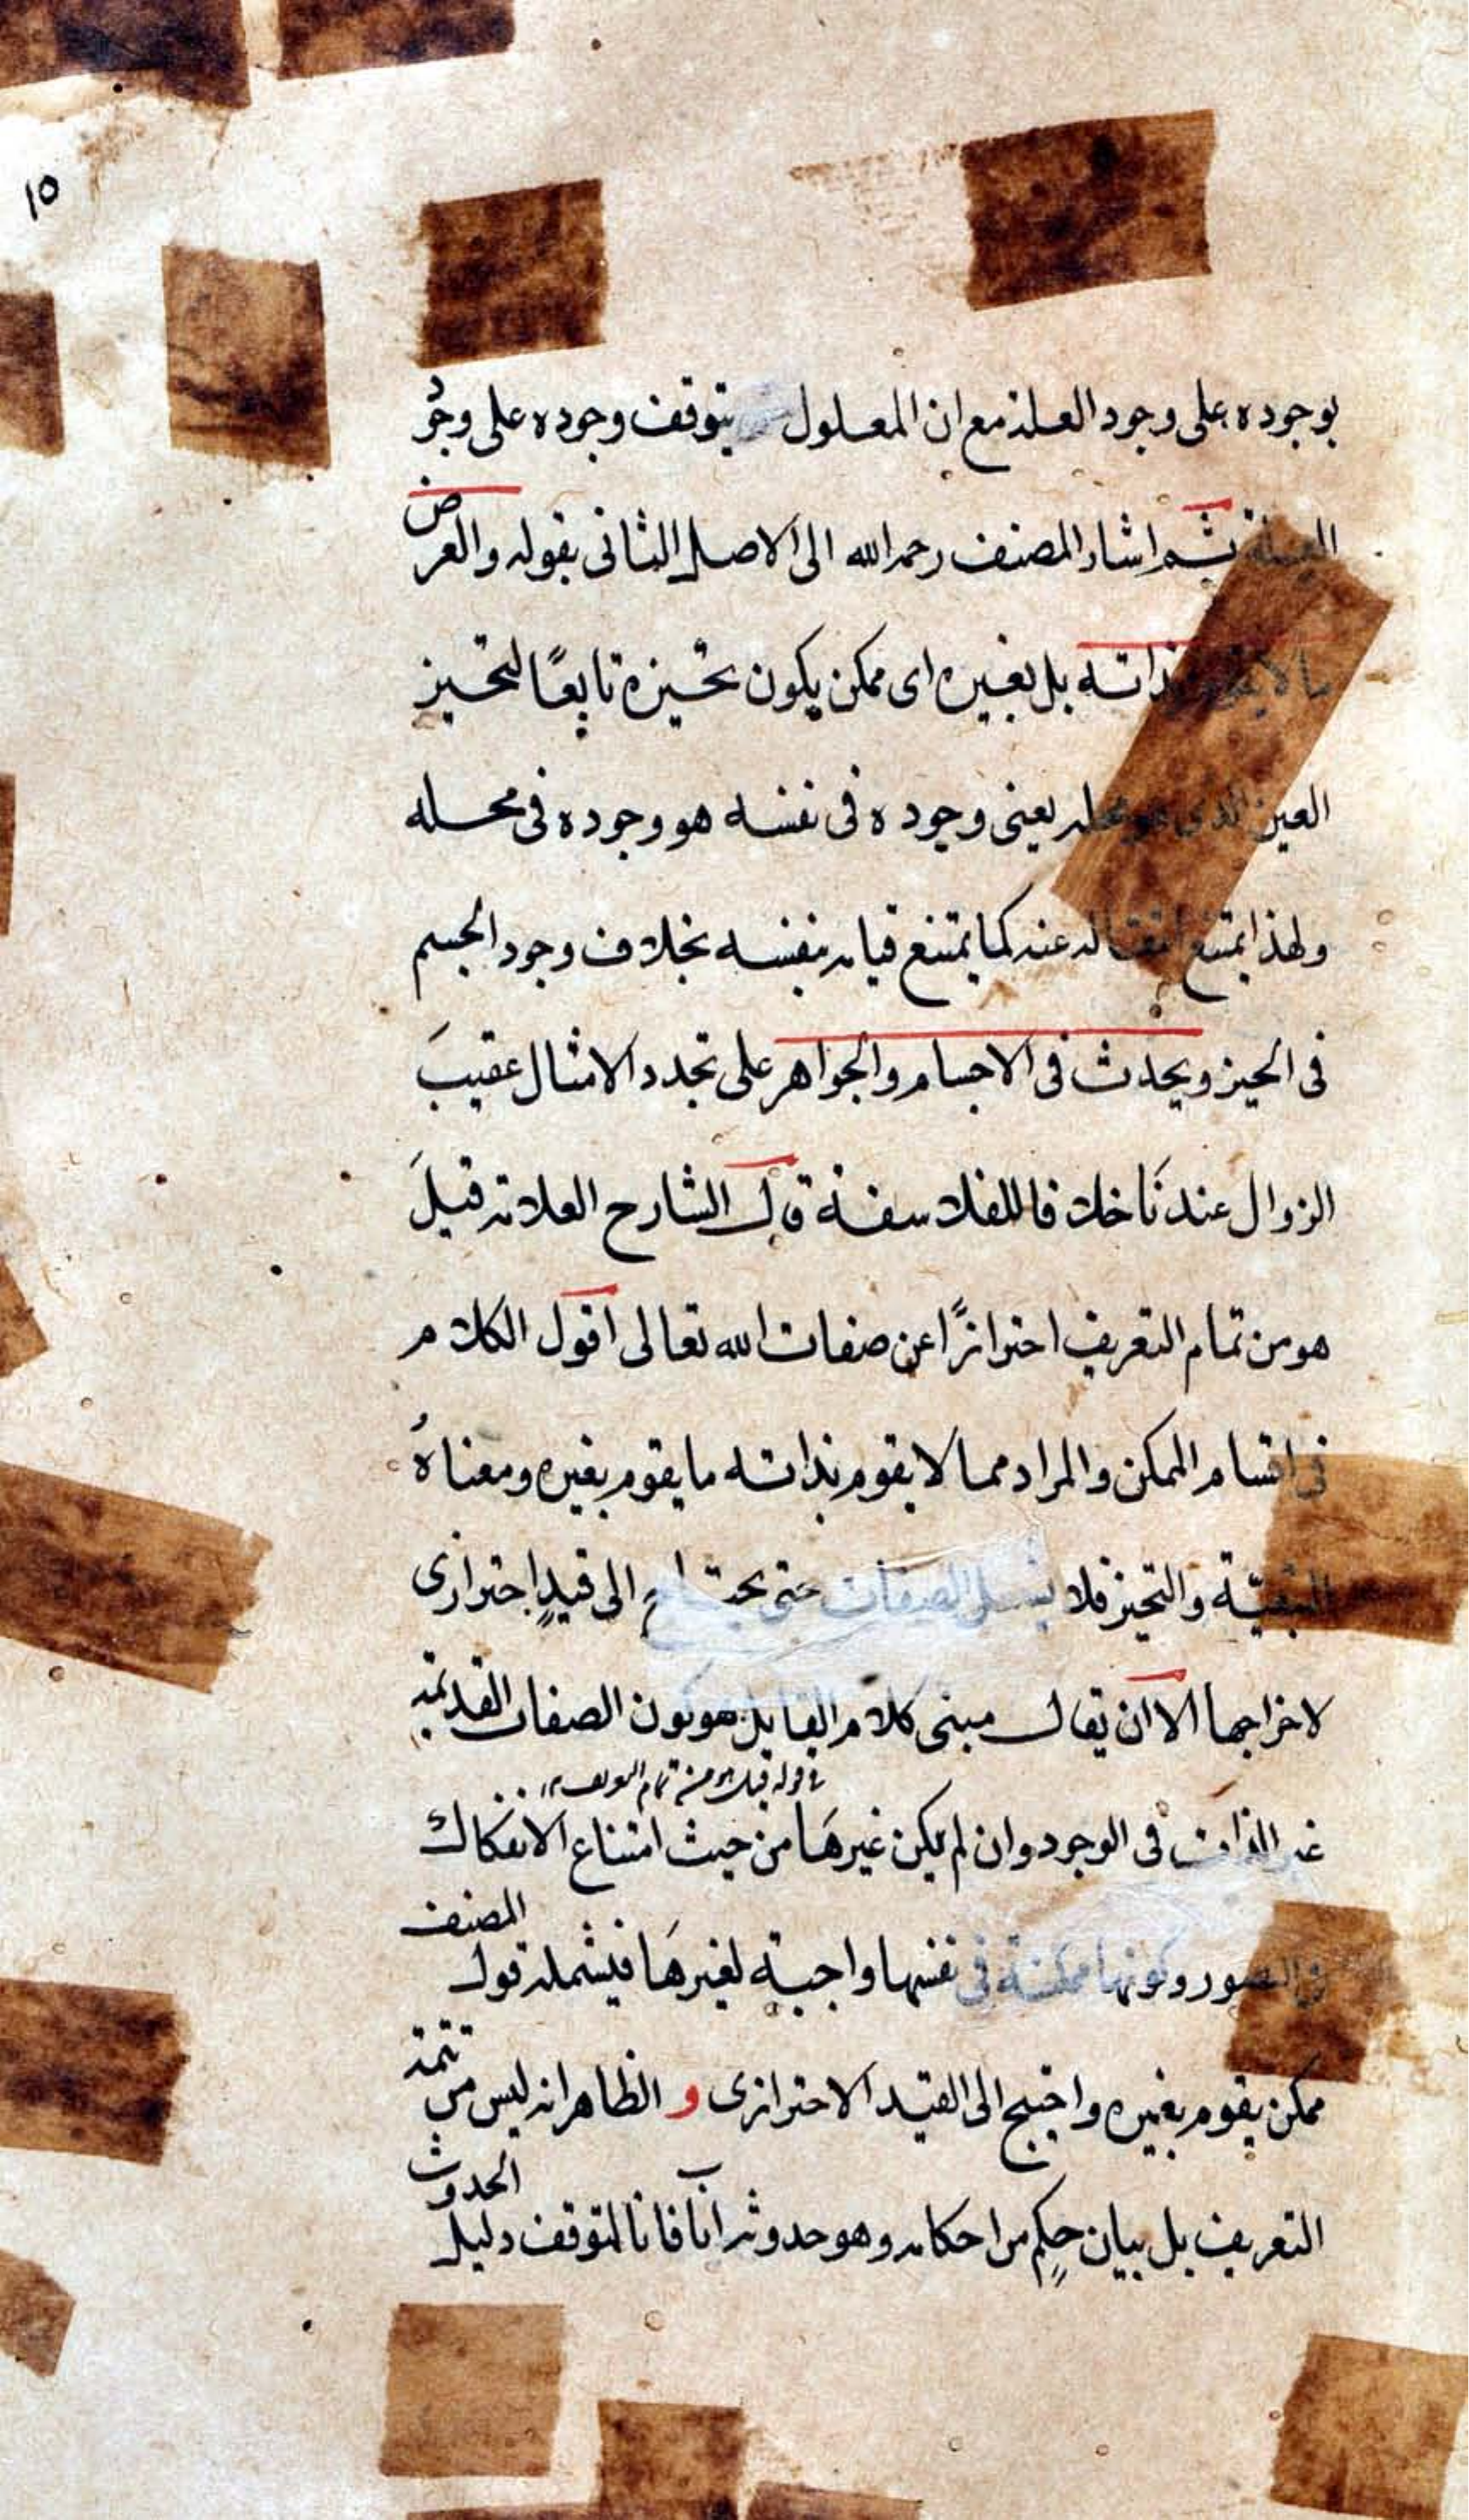 ١٥
بوجوده على وجود العلة مع ان المعلول يتوقف وجوده على وجود
العلة ثم اشار المصنف رحمه الله الى الاصل الثانى بقوله والعرض
ما لا يقوم بذاته بل بغيره اى ممكن يكون تحيزه تابعًا لتحيز
العين الذى هو محله يعنى وجوده فى نفسه هو وجوده فى محله
ولهذا يمتنع انتقاله عنه كما يمتنع قيامه بنفسه بخلاف وجود الجسم
فى الحيز ويحدث فى الاجسام والجواهر على تجدد الامثال عقيبَ
الزوال عندنَا خلافا للفلاسفة قال الشارح العلامة قيلَ
هو من تمام التعريف احترازًا عن صفات الله تعالى اقول الكلام
فى اقسام الممكن والمراد مما لا يقوم بذاته ما يقوم بغيره ومعناهُ
التبعيّة والتحيز فلا يشمل الصفات حتى يحتاج الى قيدٍ احترازى
لاخراجها الا ان يقال مبنى كلام القايل هو كون الصفات القديمة
فى قوله قيل هو من تمام التعريف
غير الذات فى الوجود وان لم يكن غيرهَا من حيث امتناع الانفكاك
فى التصور وكونها ممكنة فى نفسها واجبة لغيرهَا فيشمله قول المصنف
ممكن يقوم بغيره واحتيج الى القيد الاحترازى و الظاهر انه ليس من تتمة
التعريف بل بيان حكمٍ من احكامه وهو حدوثه آنا فانا لتوقف دليل الحدوث